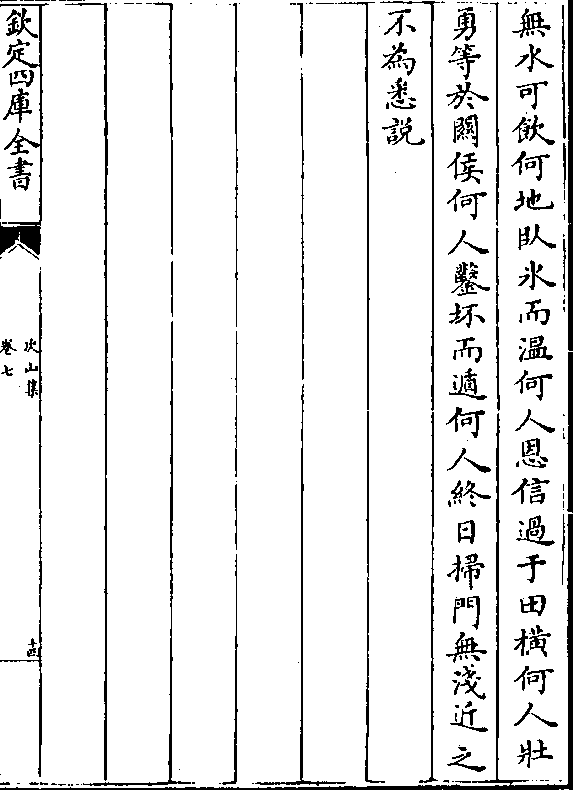 無水可飲何地臥氷而溫何人恩信過于田橫何人壯
勇等於關侯何人鑿坏而遁何人終日掃門無淺近之
不為悉説
欽定四庫全書
次山集
卷七
十四